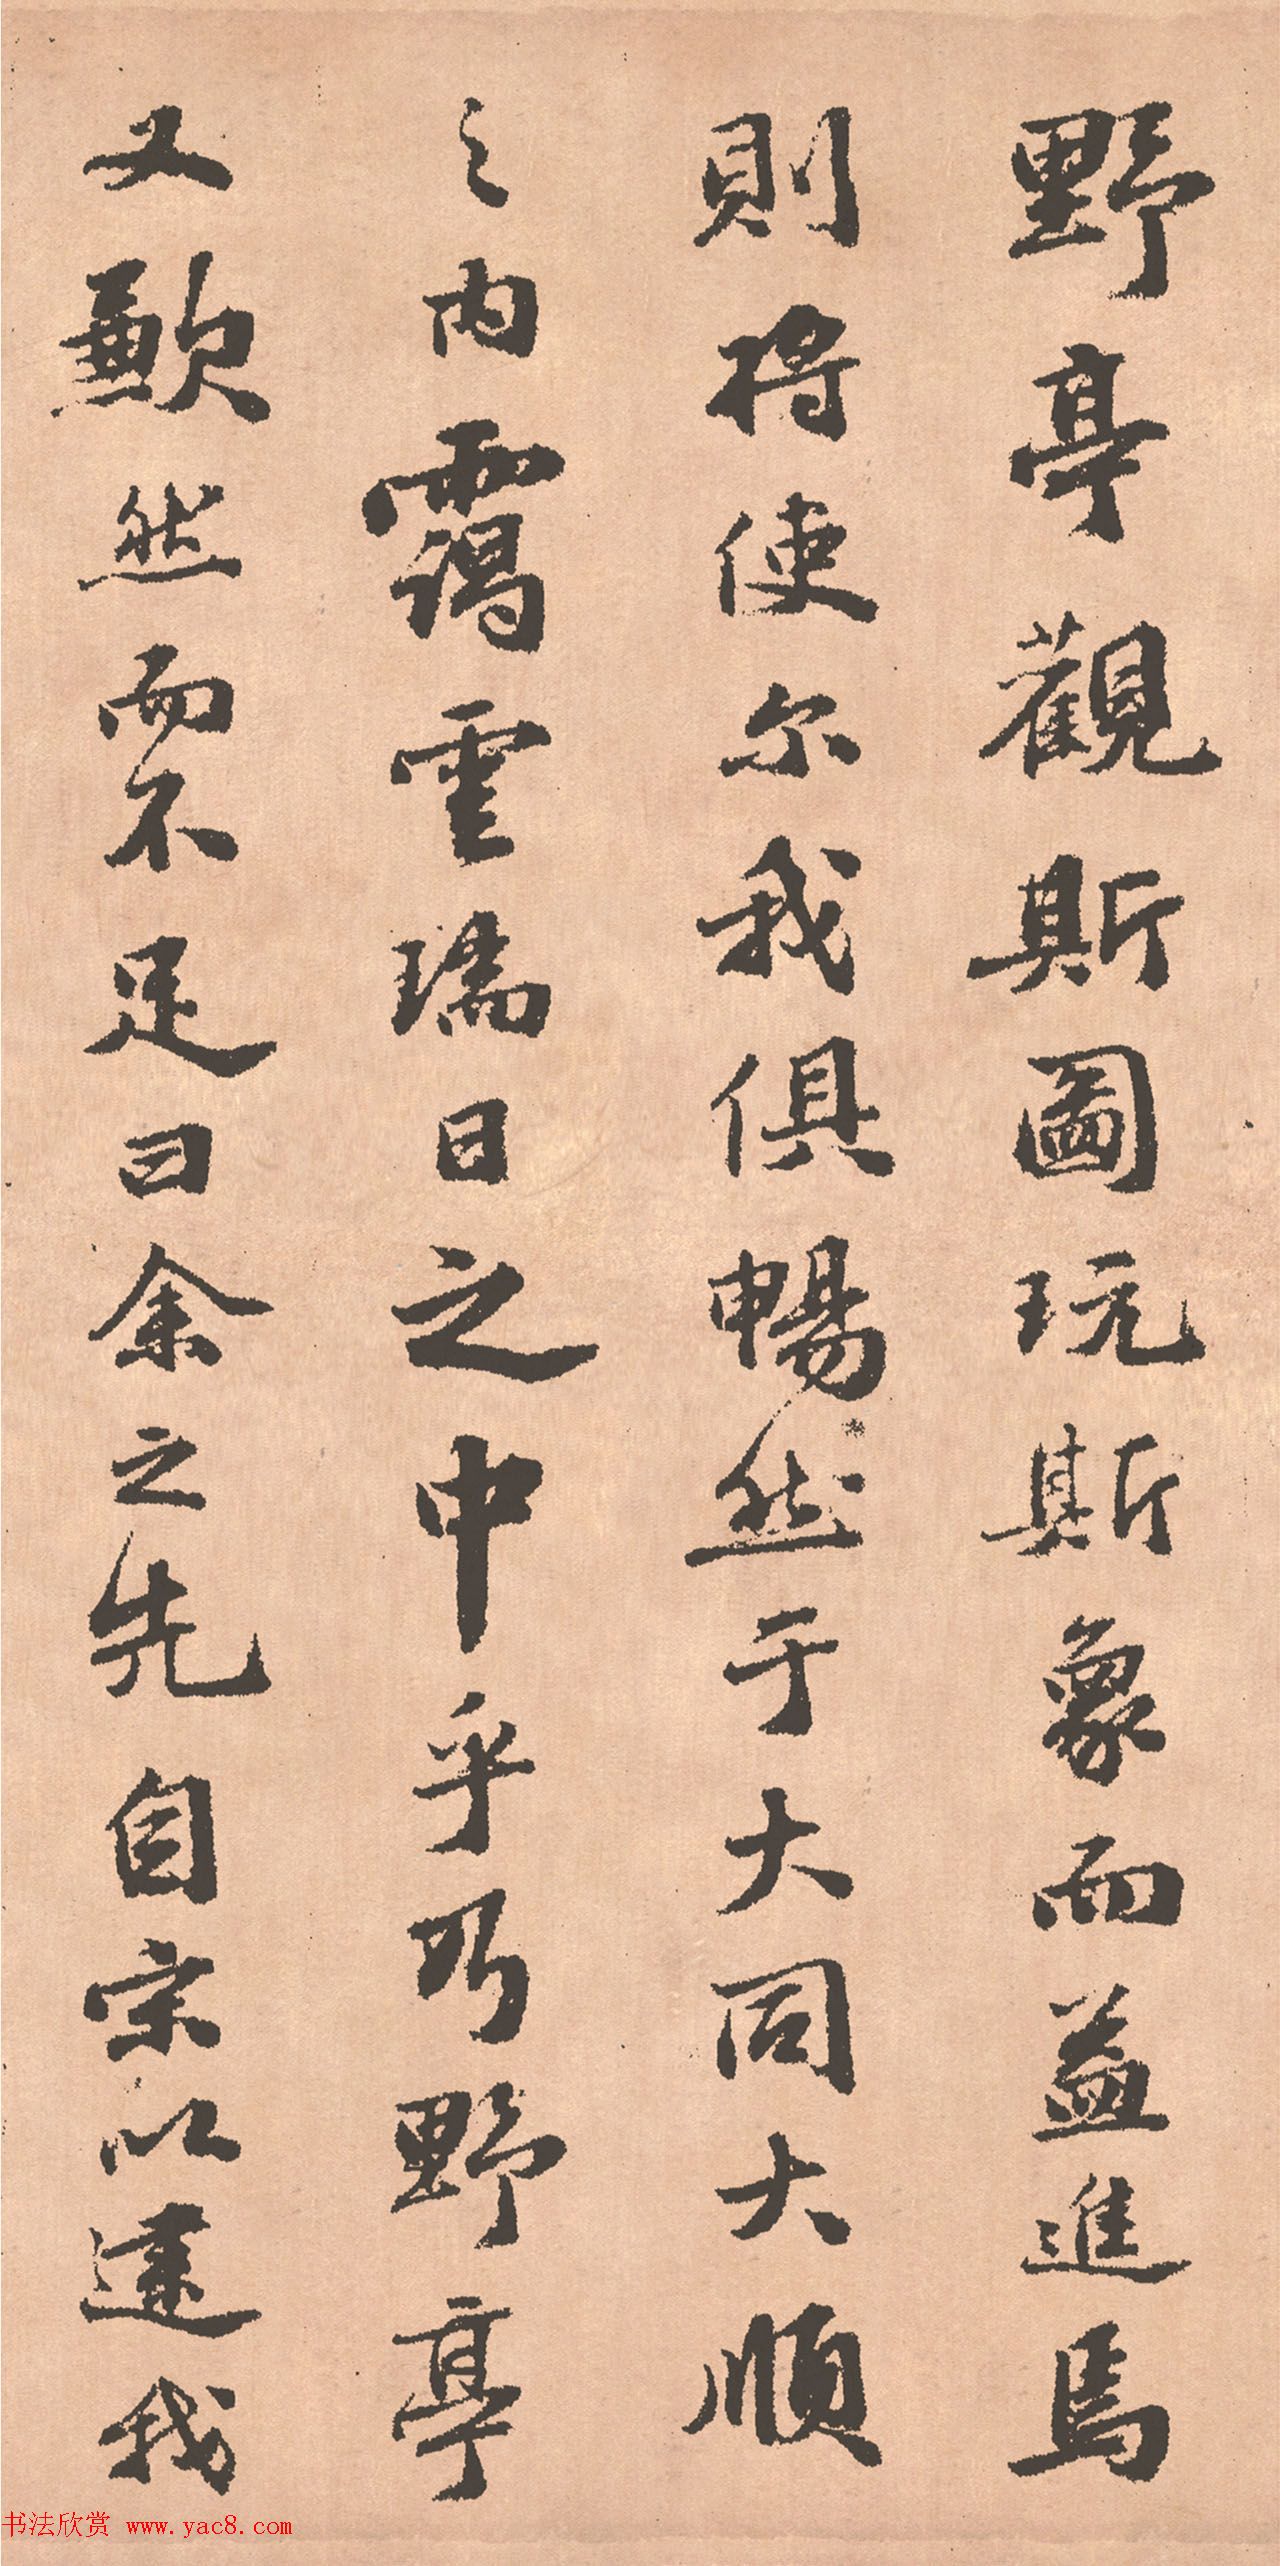 野亭觀斯圖玩斯象而益進焉
則將使尔我俱暢然于大同大順
之内靄雲瑞日之中乎乃野亭
又歉然而不足曰余之先自宗以逮我
书法欣赏 www.yac8.com